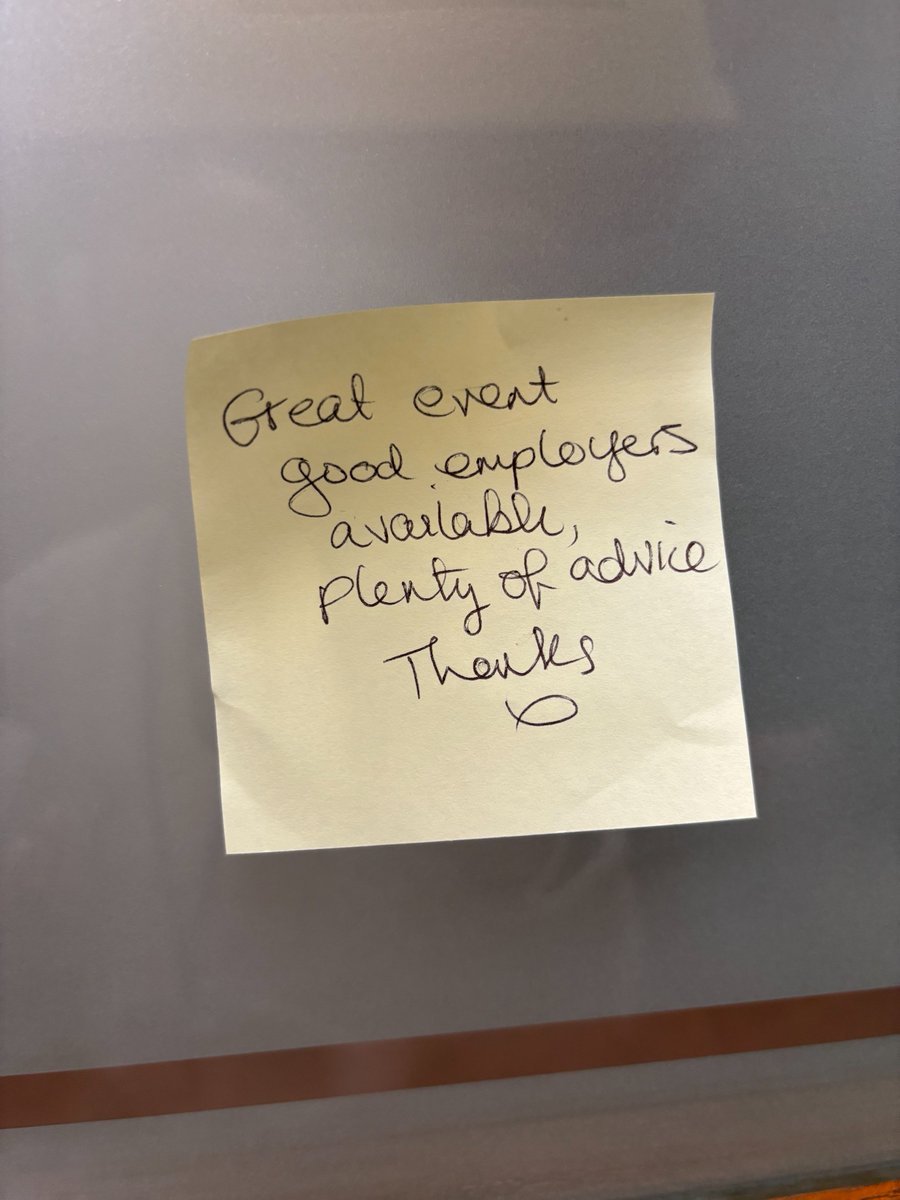 Great event
good employers
available,
plenty of advice
Thanks